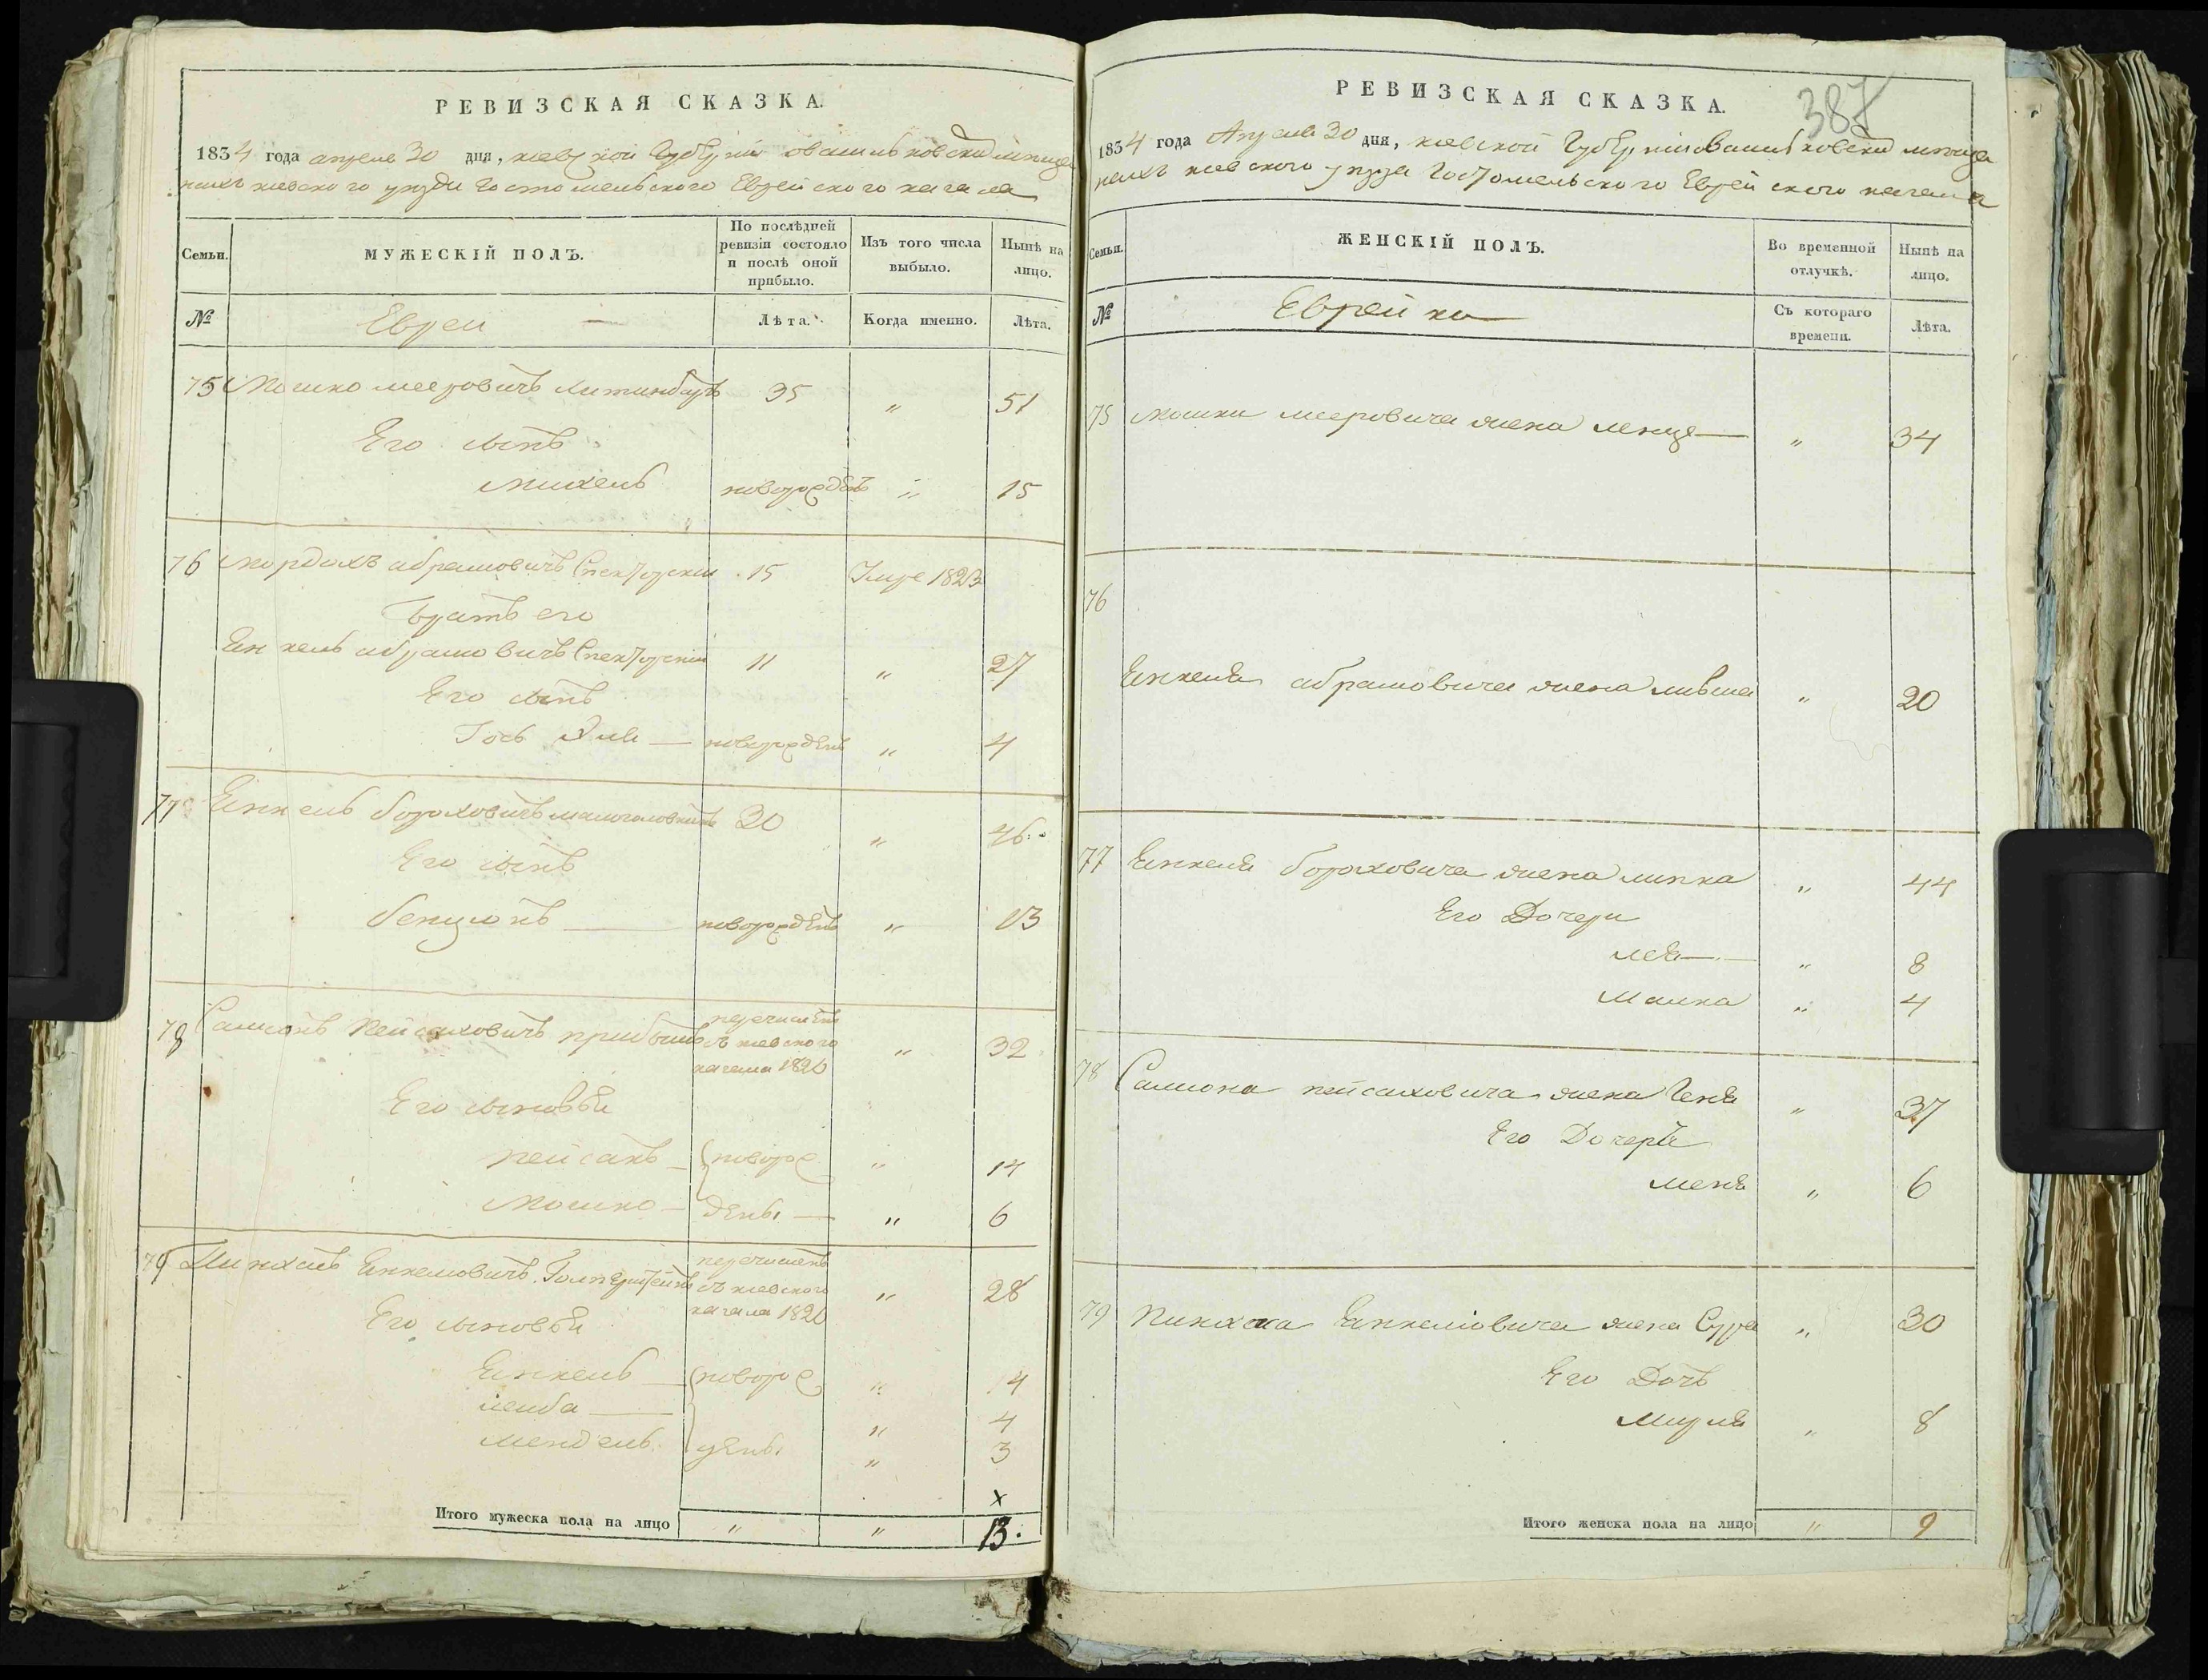 РЕВИЗСКАЯ СКАЗКА.
1834 года апреля 30 дня, киевской Губернии
киевского уезда Гостомельского Еврейского кагала
Семьи.
МУЖЕСКІЙ ПОЛЪ.
По послѣдней ревизіи состояло и послѣ оной прибыло.
Изъ того числа выбыло.
Нынѣ на лицо.
№
Евреи
Лѣта.
Когда именно.
Лѣта.
75 Мошко мееровичъ 35 " 51
Его сынъ
Михель новорожденъ " 15
76 Мордахъ абрамовичъ Спекторскій 15 Умре 1823
Братъ его
Янкель абрамовичъ Спекторскій 11 " 27
Его сынъ
Іось Эля — новорожденъ " 4
77 Янкель бороховичъ 30 " 46
Его сынъ
бенционъ — новорожденъ " 13
78 Самсонъ Пейсаховичъ перечисленъ съ киевского кагала 1826 " 32
Его сыновья
пейсахъ — новоро " 14
Мошко — жденъ — " 6
79 Пинхасъ Янкелювичъ перечисленъ съ киевского кагала 1826 " 28
Его сыновья
Янкель — новоро " 14
лейба — " 4
Мендель " 3
х
Итого мужеска пола на лицо " " 13.
387
РЕВИЗСКАЯ СКАЗКА.
1834 года Апреля 30 дня, киевской Губернии
киевского уезда Гостомельского Еврейского кагала
Семьи.
ЖЕНСКІЙ ПОЛЪ.
Во временной отлучкѣ.
Нынѣ на лицо.
№
Еврейки
Съ котораго времени.
Лѣта.
75 Мошки мееровича жена " 34
76
Янкеля абрамовича жена ливша " 20
77 Янкеля бороховича жена " 44
Его Дочери
лея — " 8
Малка " 4
78 Самсона пейсаховича жена Геня " 37
Его Дочеръ
меня " 6
79 Пинхаса Янкелювича жена Сура " 30
Его Дочъ
Мирля " 8
Итого женска пола на лицо " 9